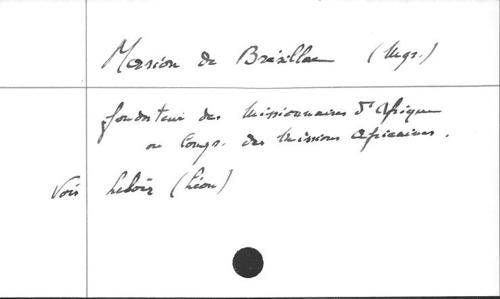 Marion de Brésillac (Mgr.)
fondateur des Missionnaires d'Afrique
ou Congr. des Missions Africaines.
Voir Leloir (Léon)